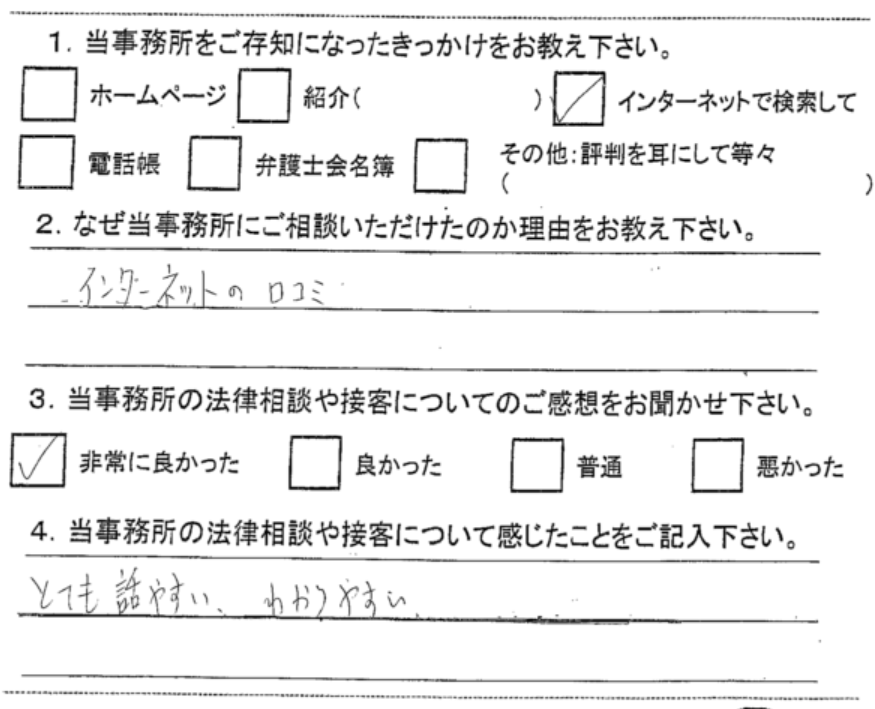 1. 当事務所をご存知になったきっかけをお教え下さい。
ホームページ 紹介( ) インターネットで検索して
電話帳 弁護士会名簿 その他:評判を耳にして等々
( )
2. なぜ当事務所にご相談いただけたのか理由をお教え下さい。
インターネットの口コミ
3. 当事務所の法律相談や接客についてのご感想をお聞かせ下さい。
非常に良かった 良かった 普通 悪かった
4. 当事務所の法律相談や接客について感じたことをご記入下さい。
とても話やすい、わかりやすい